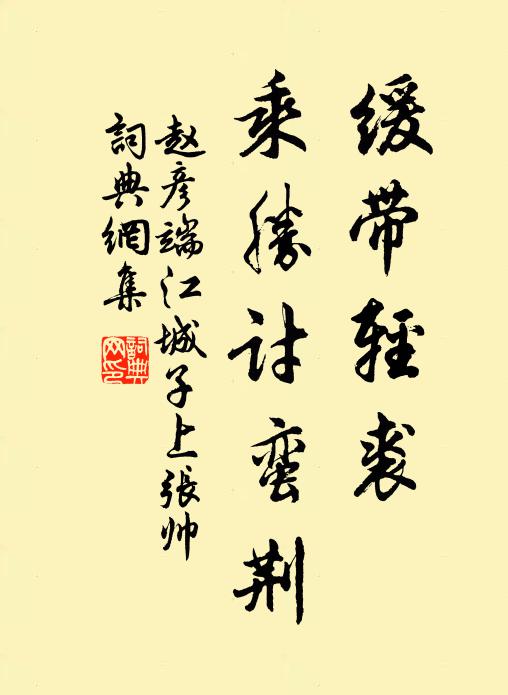 缓带轻裘
乘胜讨蛮荆
赵彦端江城子上張帅
詞典網集